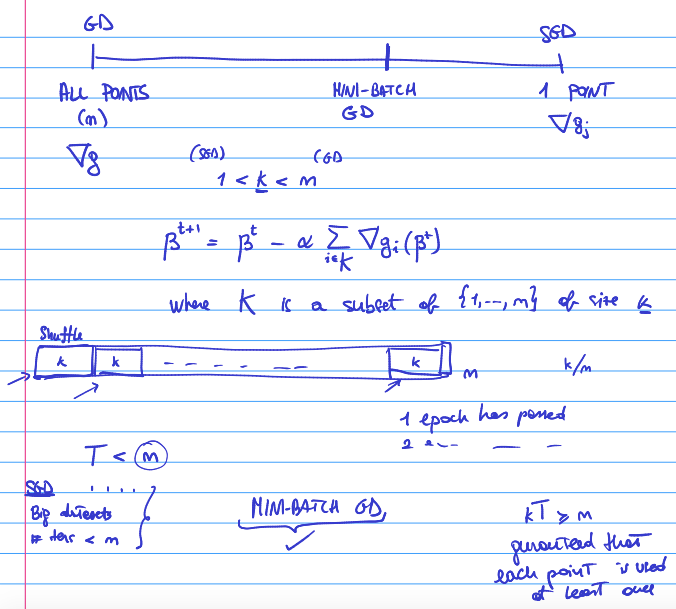 GD
SGD
ALL POINTS
MINI-BATCH
1 POINT
(m)
GD
∇g_j
∇g
(SGD) (GD
1 < k < m
β^{t+1} = β^t - α Σ_{i∈K} ∇g_i(β^t)
where K is a subset of {1,--,m} of size k
Shuffle
k k - - - - - - k m k/m
1 epoch has passed
2
T < m
SGD
Big datasets
# iters < m
MINI-BATCH GD,
kT ≥ m
guaranteed that
each point is used
at least once